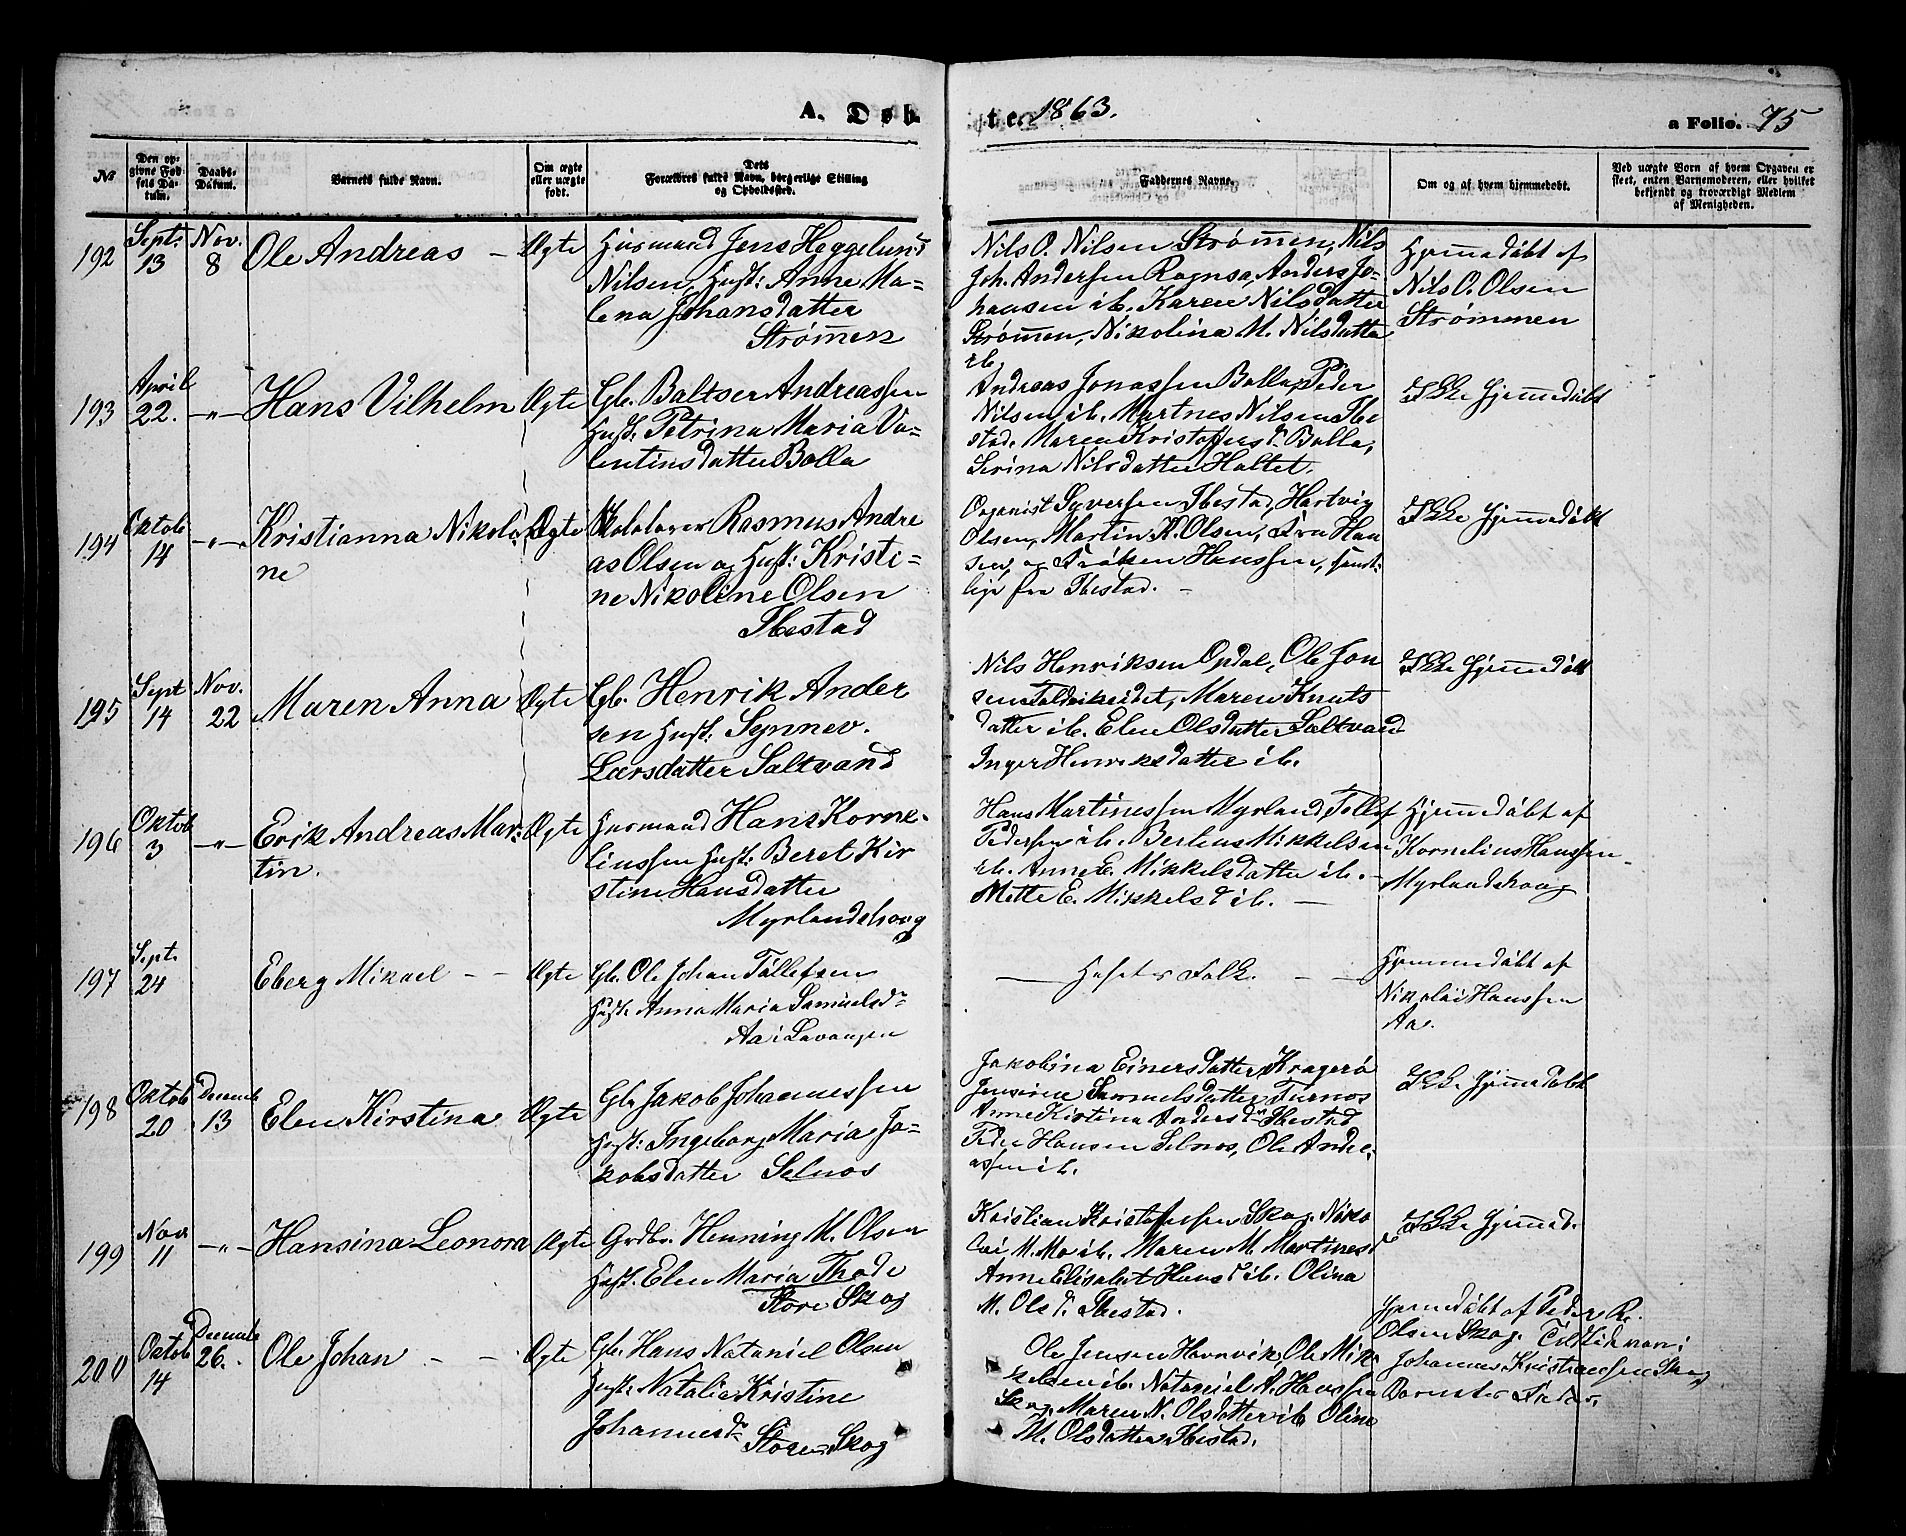 A. Døb
te 1863.
a Folio. 75
No
Den op-
givne Fød-
sels Da-
tum.
Daabs-
Datum.
Barnets fulde Navn.
Om ægte
eller uægte
født.
Dets
Forældres fulde Navn, borgerlige Stilling
og Opholdssted.
Faddernes Navne.
Om og af hvem hjemmedøbt.
Ved uægte Born af hvem Opgaven er
skeet, enten Barnemoderen, eller hvilket
bekjendt og troværdigt Medlem
af Menigheden.
192
Sept.
13
Nov.
8
Ole Andreas –
Ægte
Husmand Jens Heggelund
Nilsen, Hust: Anne Ma-
lena Johansdatter
Strømen
Nils O. Nilsen Strømen, Nils
Joh. Andersen Rognsa, Anders Jo-
hansen ib. Karen Nilsdatter
Strømen, Nikolina M. Nilsdatter
ib.
Hjemedøbt af
Nils O. Olsen
Strømmen
193
April
22.
–"–
Hans Vilhelm
Ægte
Gb. Baltser Andreassen
Hust: Petrina Maria Va-
lentinsdatter Bolla
Andreas Jonassen Bolla, Peder
Nilsen ib. Martnes Nilsen Ibe
stad. Maren Kristoffersd. Bolla,
Serina Nilsdatter Haltet.
Ikke Hjemedøbt
194
Oktob
14
–"–
Kristianna Nikoli
ne
Ægte
Skolelærer Rasmus Andre
as Olsen og Hust: Kristi-
ne Nikoline Olsen
Ibestad
Organist Syversen Ibestad, Hartvig
Olsen, Martin K. Olsen, Fru Han
sen, og Frøken Hanssen, samt-
lige fra Ibestad. –
Ikke Hjemedøbt
195
Sept
14
Nov.
22
Maren Anna
Ægte
Gb. Henrik Ander
sen Hust: Synnev.
Larsdatter Saltvand
Nils Henriksen Opdal, Ole Jon
sen Foldvikeidet, Maren Knuts
datter ib. Elen Olsdatter Saltvand
Inger Henriksdatter ib.
Ikke Hjemedøbt
196
Oktob
3
–"–
Erik Andreas Mar-
tin.
Ægte
Husmand Hans Korne-
liussen Hust: Beret Kir
stine Hansdatter
Myrlandshoug
Hans Martinessen Myrland, Tollef
Pedersen ib. Berteus Mikkelsen
ib. Anne E. Mikkelsdatter ib. –
Mette E. Mikkelsd ib. –
Hjemedøbt af
Kornelius Hanssen
Myrlandshoug
197
Sept.
24
Eberg Mikael – –
Ægte
Gb. Ole Johan Tollefsen
Hust: Anna Maria Samuelsdr
Aa i Lavangen
– Husets Folk. –
Hjemmedøbt af
Nikolai Hanssen
Aa.
198
Oktob
20
Decemb
13
Elen Kirstina
Ægte
Gb. Jakob Johannessen
Hust: Ingeborg Maria Ja-
kobsdatter Selnos
Jakobina Einersdatter Kragerø
Jensine Samuelsdatter Furnos
Anne Kirtina Andersdr Ibestad
Peder Hansen Selnos, Ole Andre-
assen ib.
Ikke Hjemedøbt
199
Nov.
11
–"–
Hansina Leonora
Ægte
Grdbr. Henning M. Olsen
Hust: Elen Maria Thode
Store Skog
Kristian Kristoffersen Skog, Niko
lai M. Mo ib. Maren M. Martinesd
Anne Elisabet Hansd ib. Olina
M. Olsd. Ibestad.
Ikke Hjemed.
200
Oktob
14
Decemb
26.
Ole Johan – –
Ægte
Gb. Hans Nataniel Olsen
Hust: Natalia Kristine
Johannesdr
Store Skog
Ole Jensen Havnvik, Ole Mik
kelsen ib. Nataniel A. Hanssen
Skog, Maren N. Olsdatter ib. Olina
M. Olsdatter Ibestad.
Hjemedøbt af Peder R.
Olsen Skog. Tilstede
Johannes Kristiansen Skog
Barnets Fader.